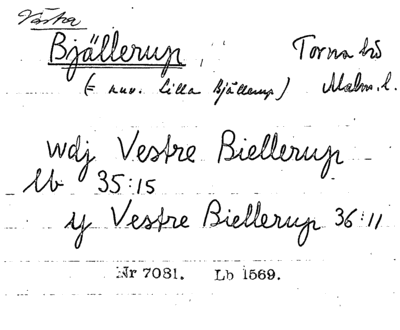 Västra
Bjällerup, Torna hd
(= nuv. Lilla Bjällerup) Malm. l.
wdj Vestre Biellerup
Lb 35:15
y Vestre Biellerup 36:11
Nr 7081. Lb 1569.